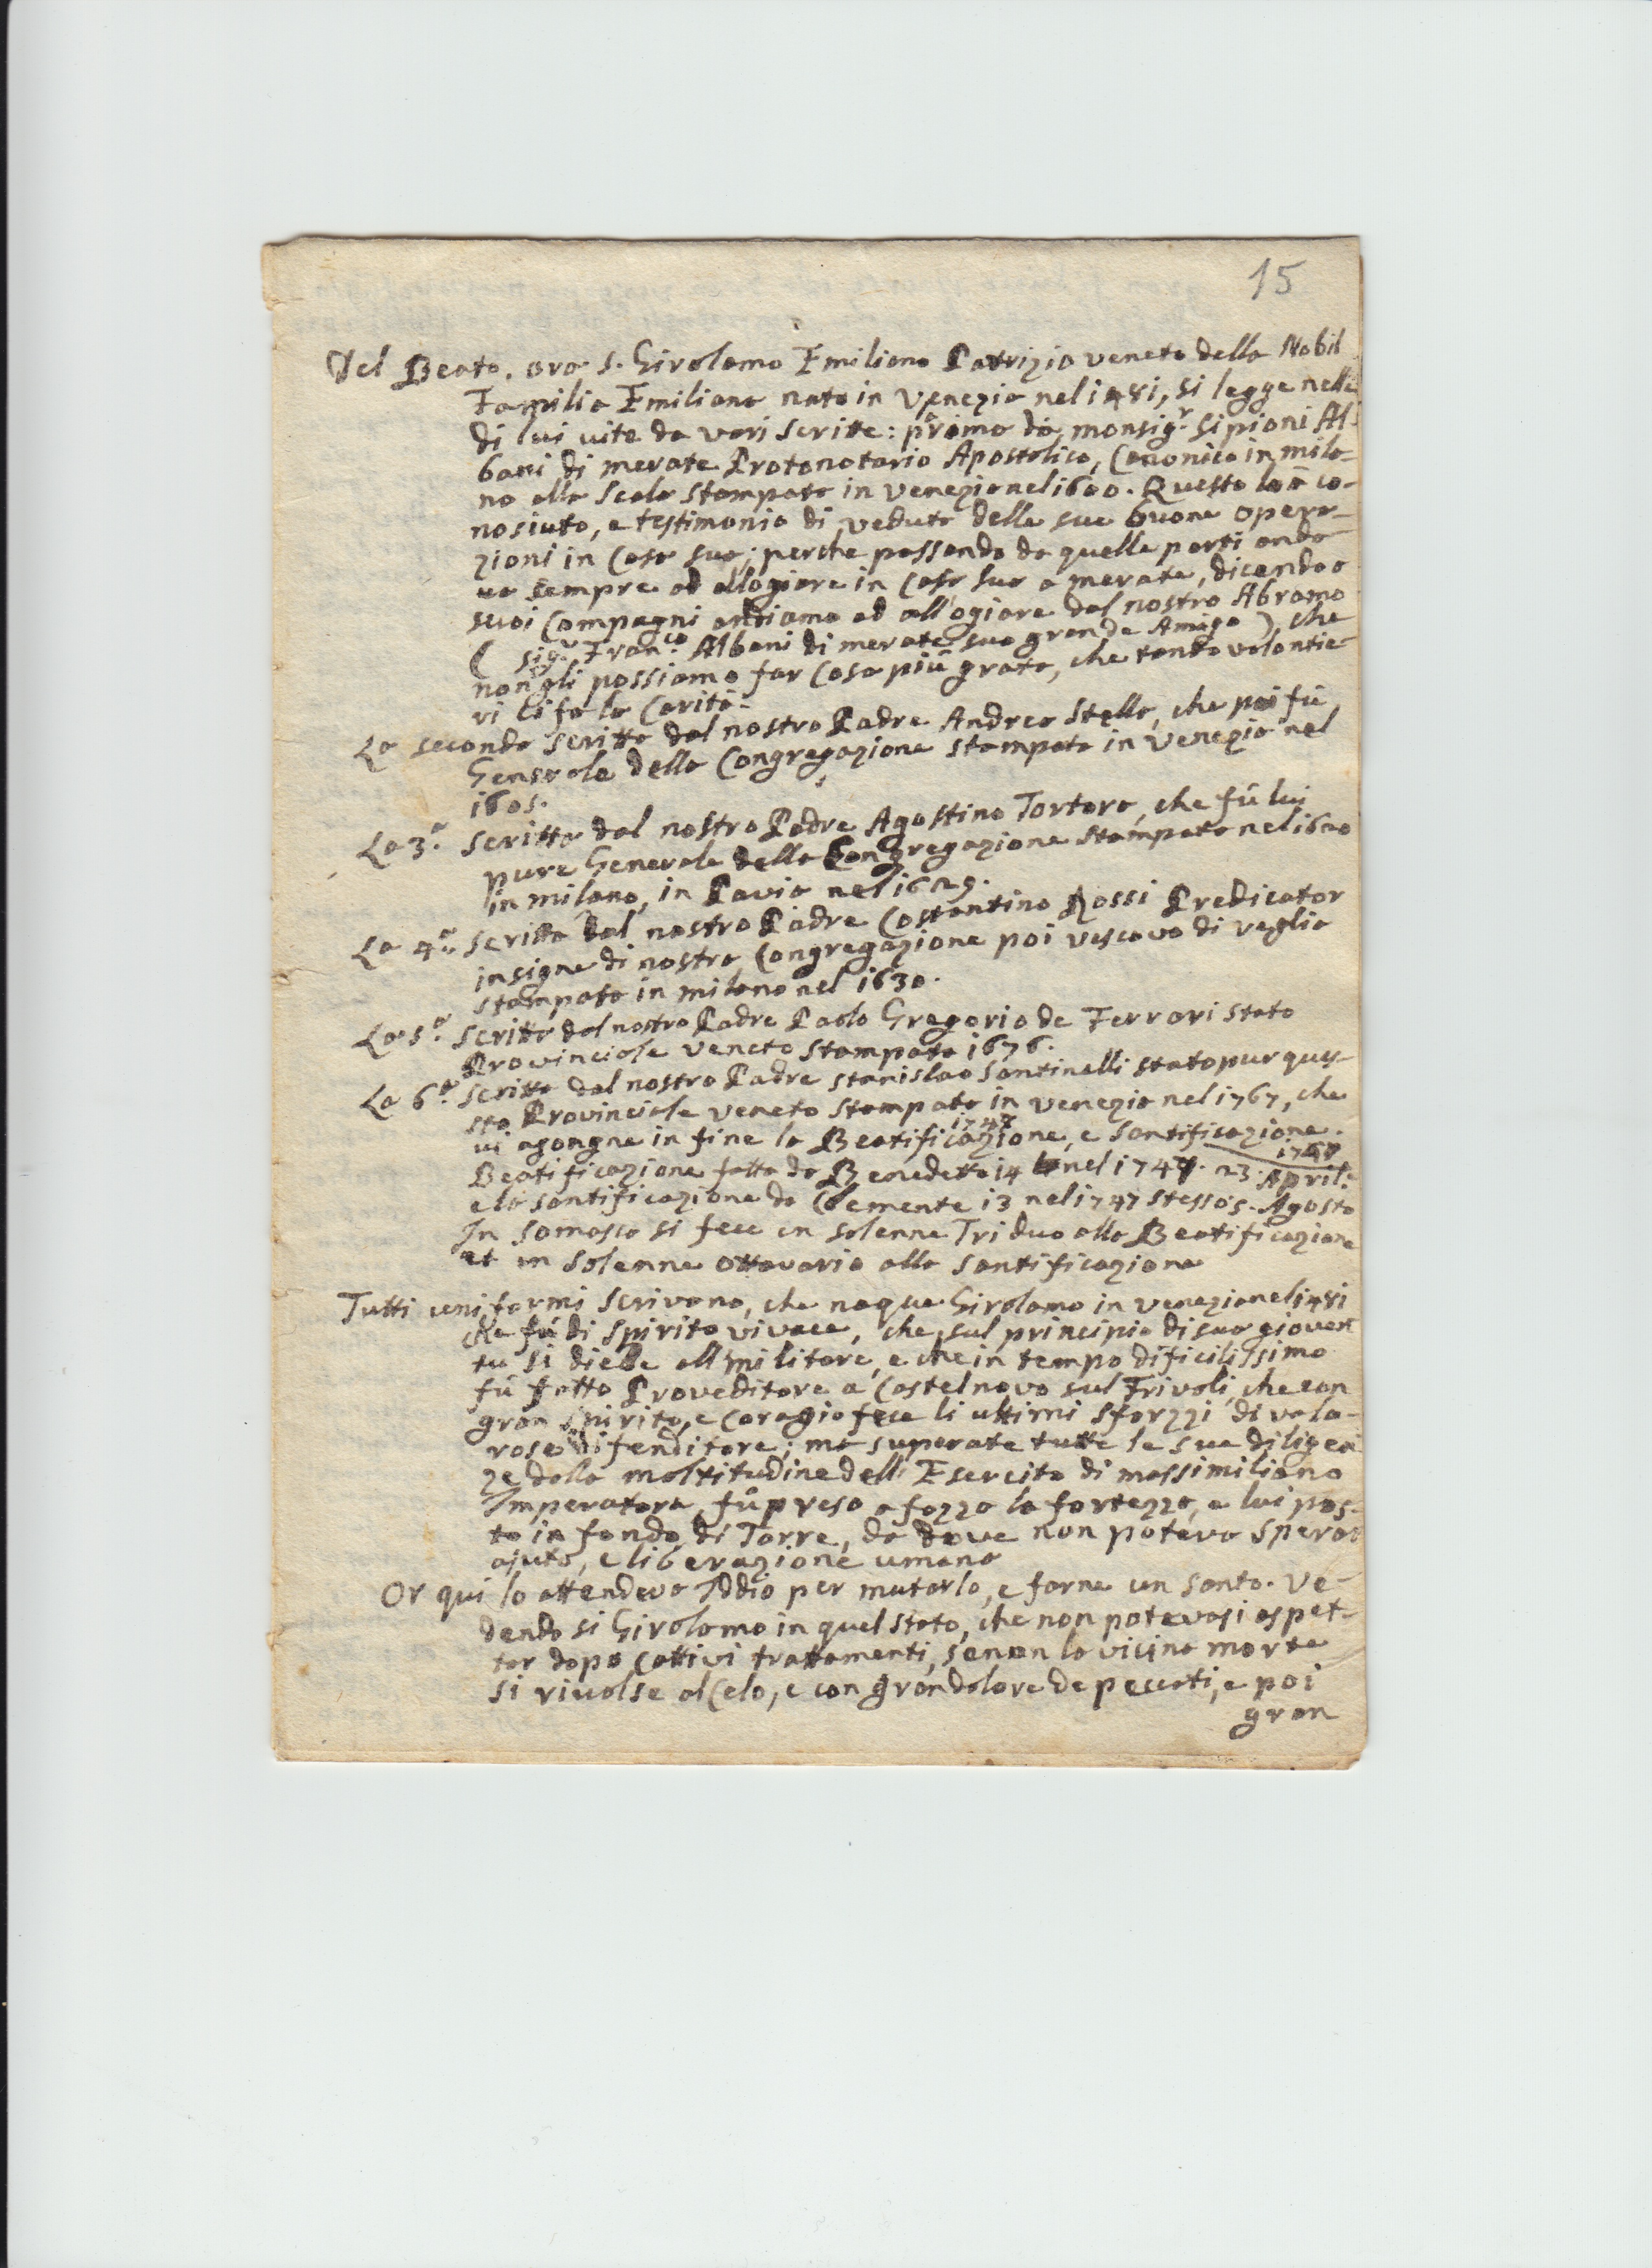 15
Del Beato. ora S. Girolamo Emiliano Patrizio veneto della Nobil
Famiglia Emiliana nato in Venezia nel 1481, si legge nelle
di lui vite da varj scritte: primo da monsig.r Sipioni Al-
bani di merate Protonotario Apostolico, Canonico in mila-
no alla Scala stampata in Venezia nel 1600. Questo lo à co-
nosiuto, e testimonio di veduta delle sue buone opera-
zioni in Casa sua; perche passando da quelle parti anda-
va sempre ad allogiare in Casa sua a merate, dicendo a
suoi Compagni andiamo ad all'ogiare dal nostro Abramo
( sig.r Fran.co Albani di merate suo grande Amigo ), che
non gli possiamo far Cosa più grata, che tanto volontie-
ri ci fa la Carità.
La seconda scritta dal nostro Padre Andrea Stella, che poi fù
Generale della Congregazione stampata in Venezia nel
1605.
La 3.a scritta dal nostro Padre Agostino Tortora, che fù lui
pure Generale della Congregazione stampata nel 1620
in milano, in Pavia nel 1629.
La 4.a scritta dal nostro Padre Costantino Rossi Predicator
insigne di nostra Congregazione poi vescovo di veglia
stampata in milano nel 1630.
La 5.a scritta dal nostro Padre Paolo Gregorio de Ferrari stato
Provinciale veneto stampata 1676.
La 6.a scritta dal nostro Padre stanislao Santinelli stato pur ques-
sto Provinciale veneto stampata in venezia nel 1767, che
vi agongne in fine la Beatificazione, e Santificazione.
1747 1767
Beatificazione fatta da Benedetto 14 nel 1747. 23. April.e
e la santificazione da Clemente 13 nel 1747 stesso 5. Agosto
In Somasca si fece un solenne Triduo alla Beatificazione
et un solenne ottavario alla santificazione
Tutti uniformi scrivono, che naque Girolamo in venezia nel 1481
che fù di spirito vivace, che sul principio di sua giovent
tu si diede all militare, e che in tempo dificilissimo
fù fatto Proveditore a Castelnovo sul Frivoli, che con
gran spirito, e Coragio fece li ultimi sforzzi di valo-
roso difenditore; ma superate tutte le sue diligen
ze dalla moltitudine dell' Esercito di massimiliano
Imperatore, fù presa a fozza la fortezza, e lui pos-
to in fondo di Torre, da dove non poteva sperar
ajuto, e liberazione umana
Or qui lo attendeva Iddio per mutarlo, e farne un santo. Ve-
dendosi Girolamo in quel stato, che non potevasi aspet-
tar dopo Cattivi trattamenti, se non la vicina morte
si rivolse al Celo, e con gran dolore de peccati, e poi
gran